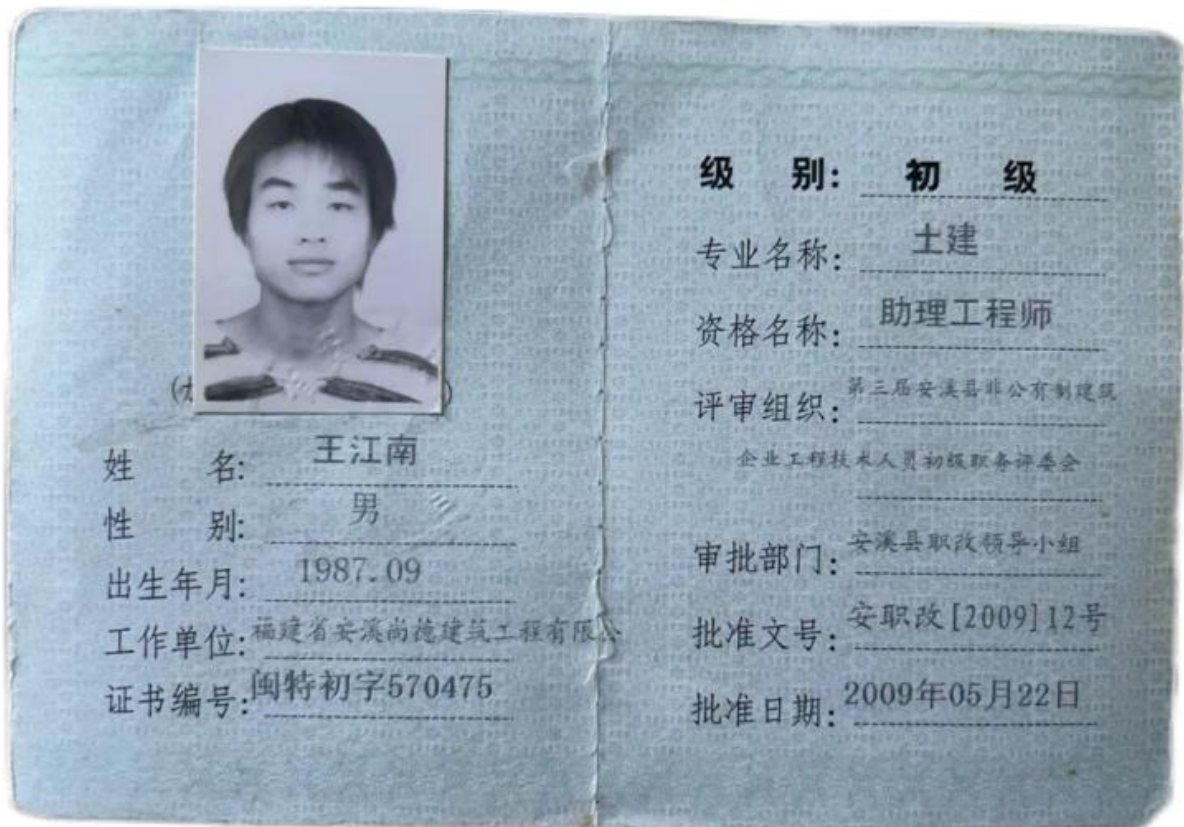 姓 名: 王江南
性 别: 男
出生年月: 1987.09
工作单位: 福建省安溪尚德建筑工程有限公
证书编号: 闽特初字570475
级 别: 初 级
专业名称: 土建
资格名称: 助理工程师
评审组织: 第三届安溪县非公有制建筑
企业工程技术人员初级职务评委会
审批部门: 安溪县职改领导小组
批准文号: 安职改[2009]12号
批准日期: 2009年05月22日